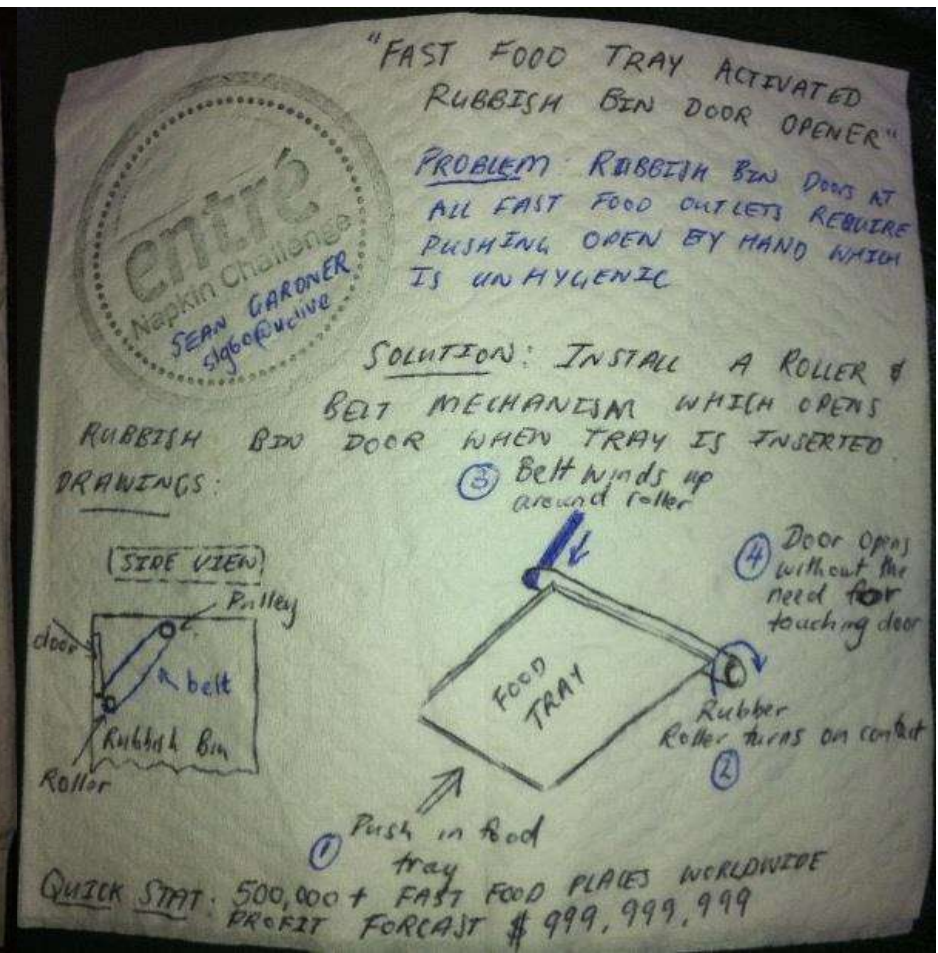 "FAST FOOD TRAY ACTIVATED
RUBBISH BIN DOOR OPENER"
entré
Napkin Challenge
SEAN GARDNER
PROBLEM: RUBBISH BIN DOORS AT
ALL FAST FOOD OUTLETS REQUIRE
PUSHING OPEN BY HAND WHICH
IS UNHYGENIC
SOLUTION: INSTALL A ROLLER &
BELT MECHANISM WHICH OPENS
RUBBISH BIN DOOR WHEN TRAY IS INSERTED.
DRAWINGS:
(SIDE VIEW)
Pulley
door
belt
Rubbish Bin
Roller
③ Belt winds up
around roller
④ Door Opens
without the
need for
touching door
FOOD
TRAY
Rubber
Roller turns on contact
②
① Push in food
tray
QUICK STAT: 500,000+ FAST FOOD PLACES WORLDWIDE
PROFIT FORCAST $999,999,999